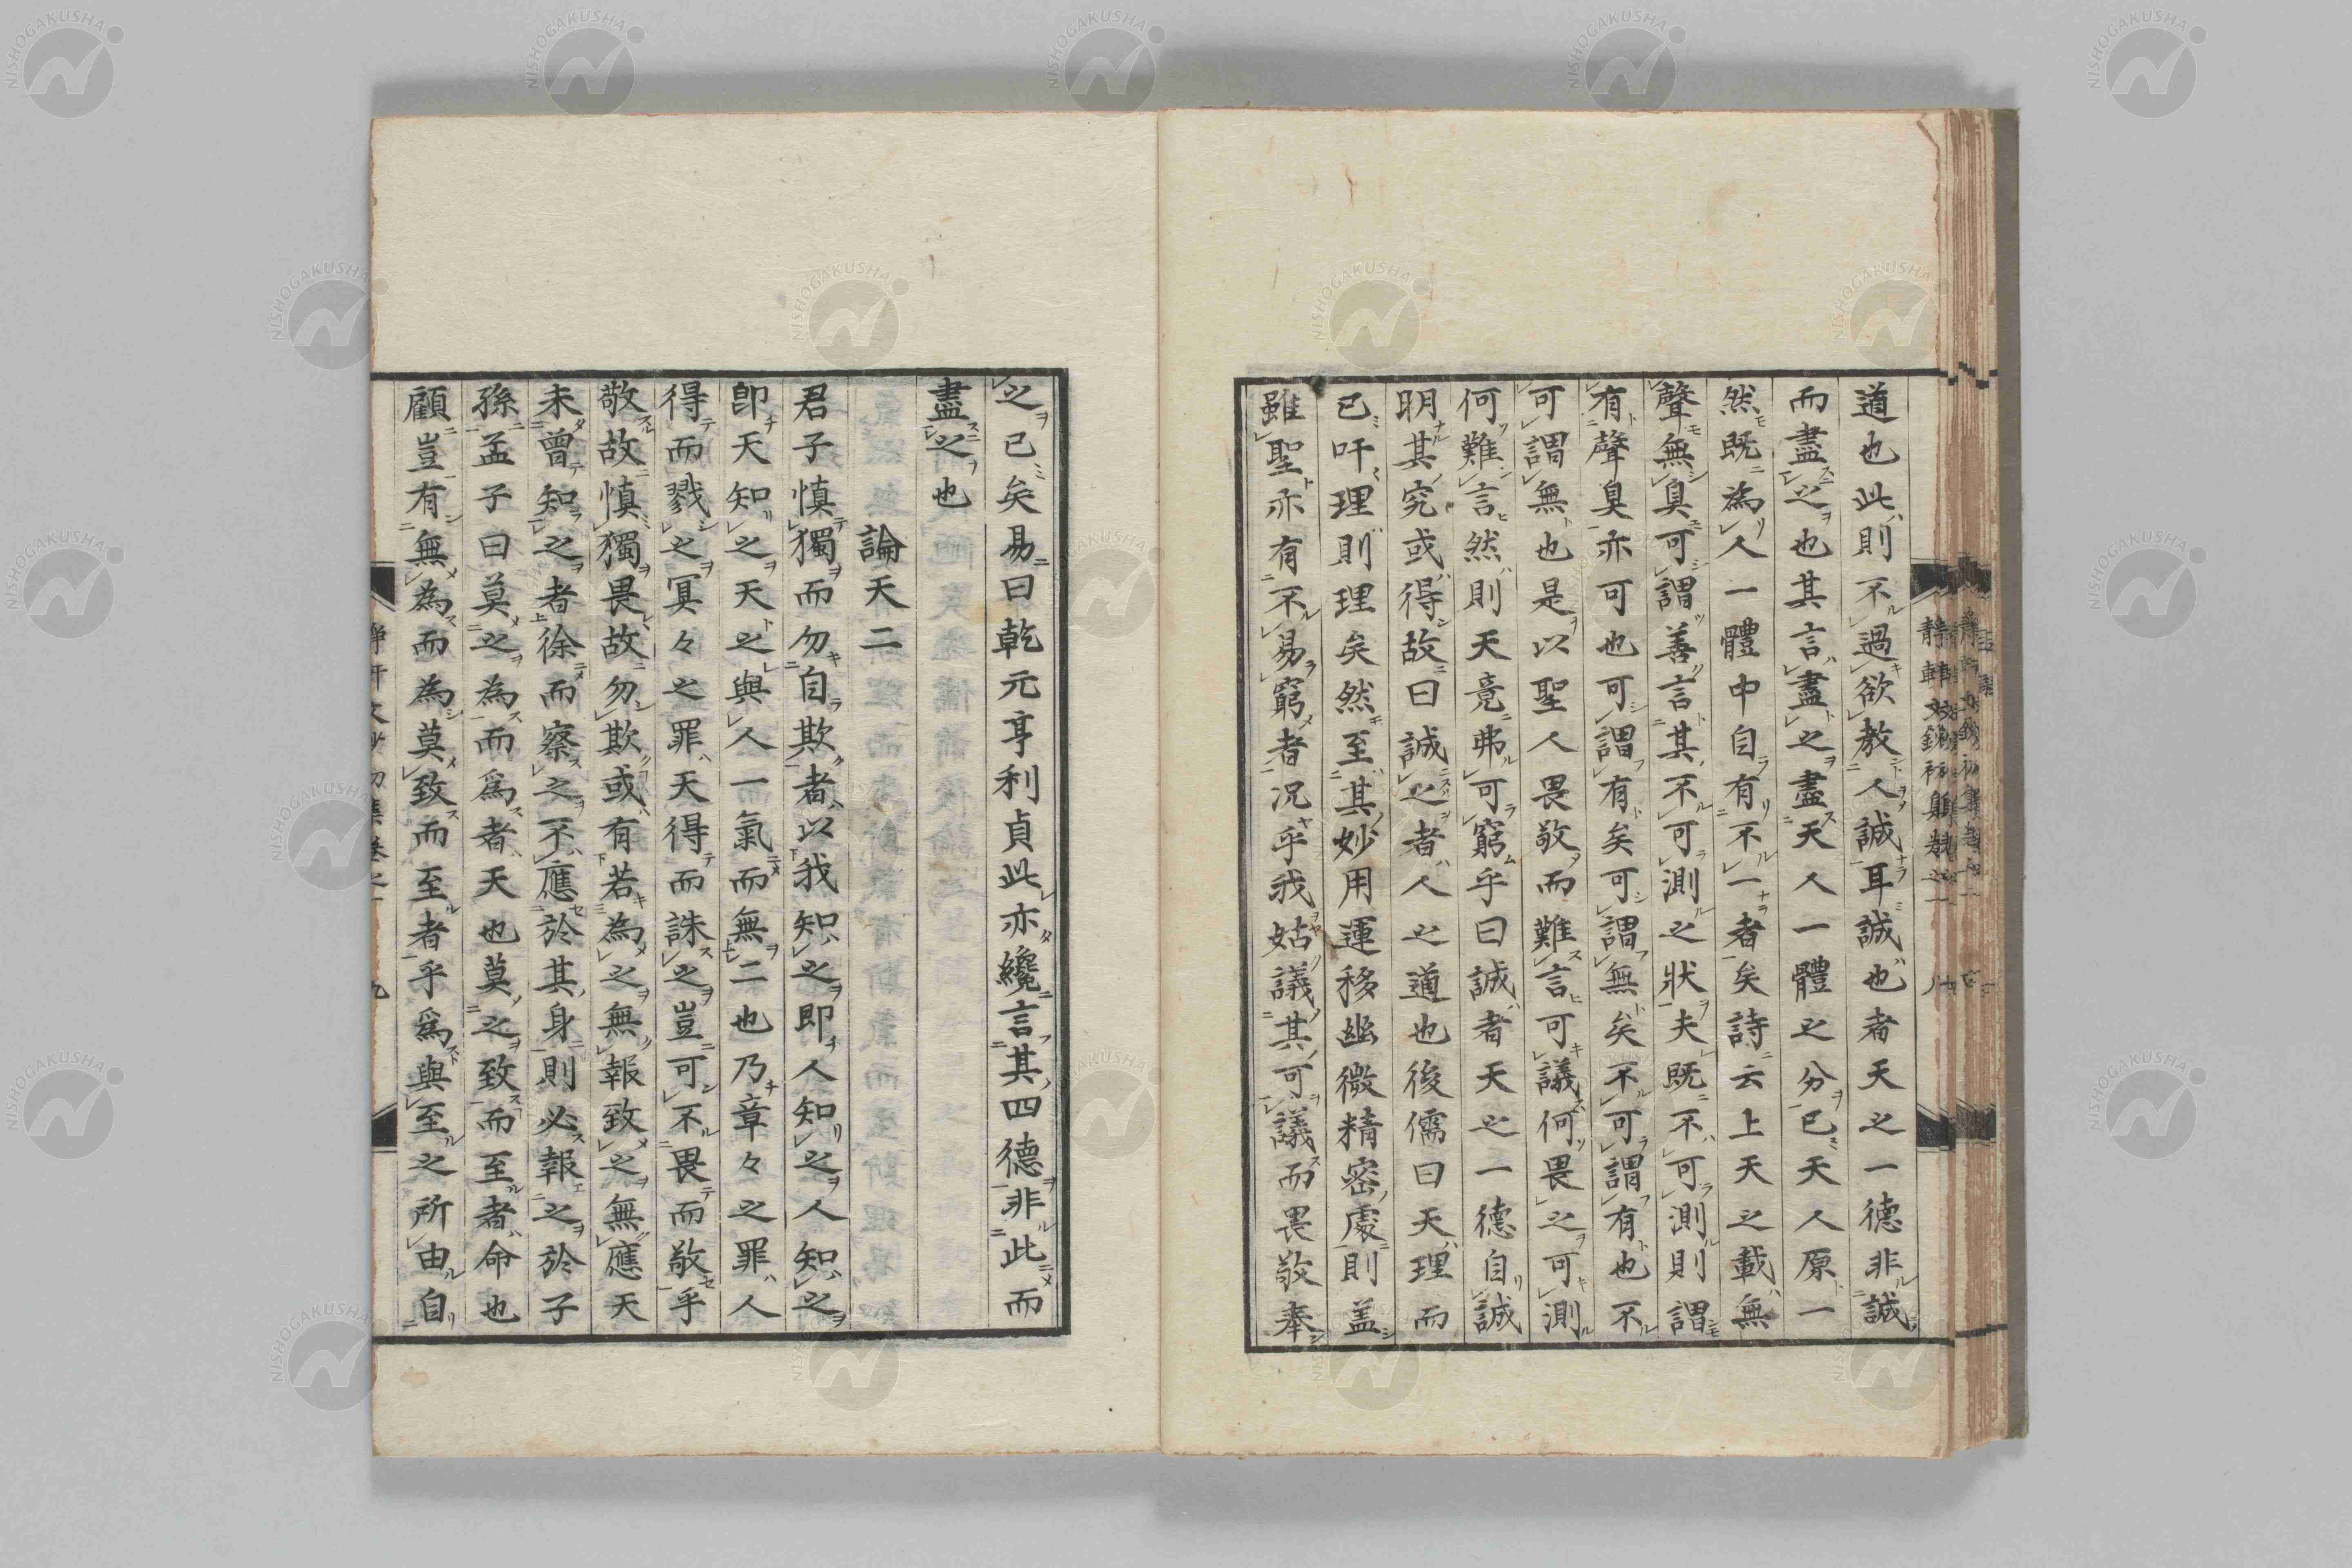 道也此則不過欲教人誠耳誠也者天之一德非誠
而盡之也其言盡之盡天人一體之分已天人原一
然既為人一體中自有不一者矣詩云上天之載無
聲無臭可謂善言其不可測之狀夫既不可測則謂
有聲臭亦可也可謂有矣可謂無矣不可謂有也不
可謂無也是以聖人畏敬而難言可議何畏之可測
何難言然則天竟弗可窮乎曰誠者天之一德自誠
明其究或得故曰誠之者人之道也後儒曰天理而
已吁理則理矣然至其妙用運移幽微精密處則盖
雖聖亦有不易窮者況乎我姑議其可議而畏敬奉
之已矣易曰乾元亨利貞此亦纔言其四德非此而
盡之也
論天二
君子慎獨而勿自欺者以我知之即人知之人知之
即天知之天之與人一氣而無二也乃章々之罪人
得而戮之冥々之罪天得而誅之豈可不畏而敬乎
敬故慎獨畏故勿欺或有若為之無報致之無應天
未曾知之者徐而察之不應於其身則必報之於子
孫孟子曰莫之為而爲者天也莫之致而至者命也
顧豈有無為而為莫致而至者乎爲與至之所由自
九
NISHOGAKUSHA